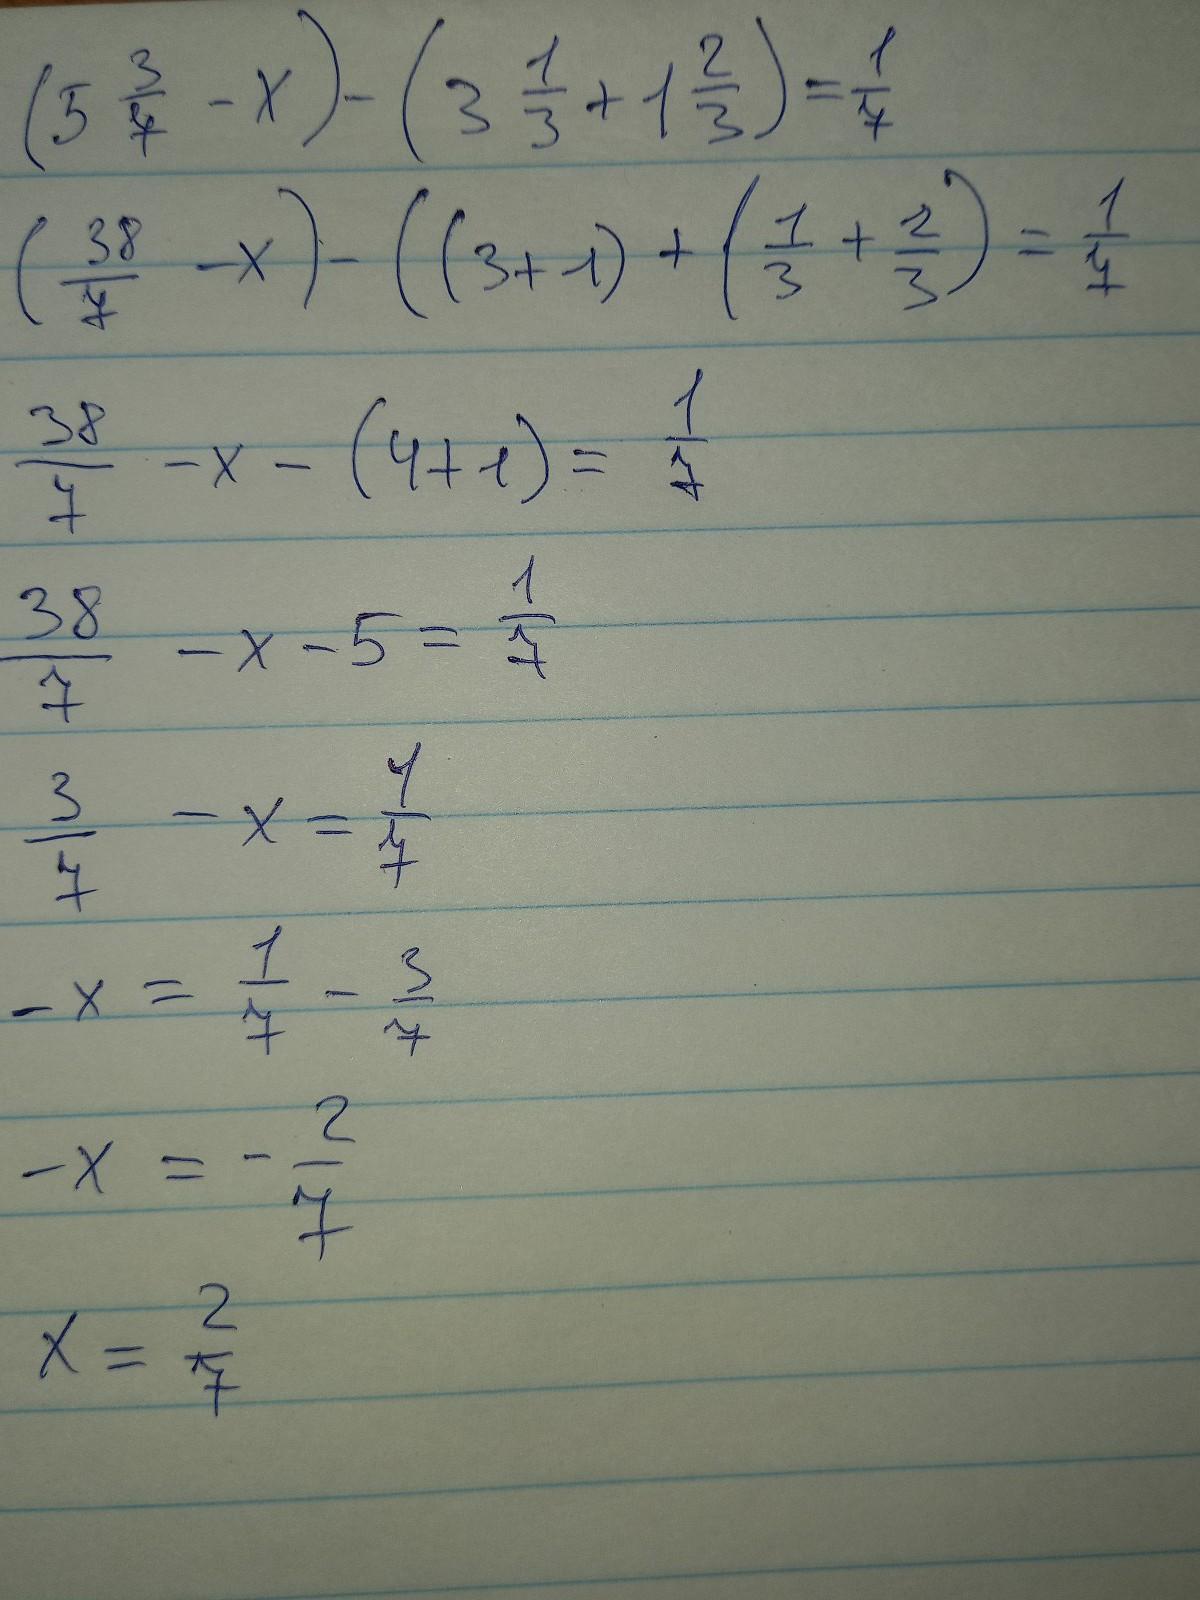 (5 3/7 - x) - (3 1/3 + 1 2/3) = 1/7
(38/7 - x) - ((3+1) + (1/3 + 2/3) = 1/7
38/7 - x - (4+1) = 1/7
38/7 - x - 5 = 1/7
3/7 - x = 1/7
-x = 1/7 - 3/7
-x = - 2/7
x = 2/7